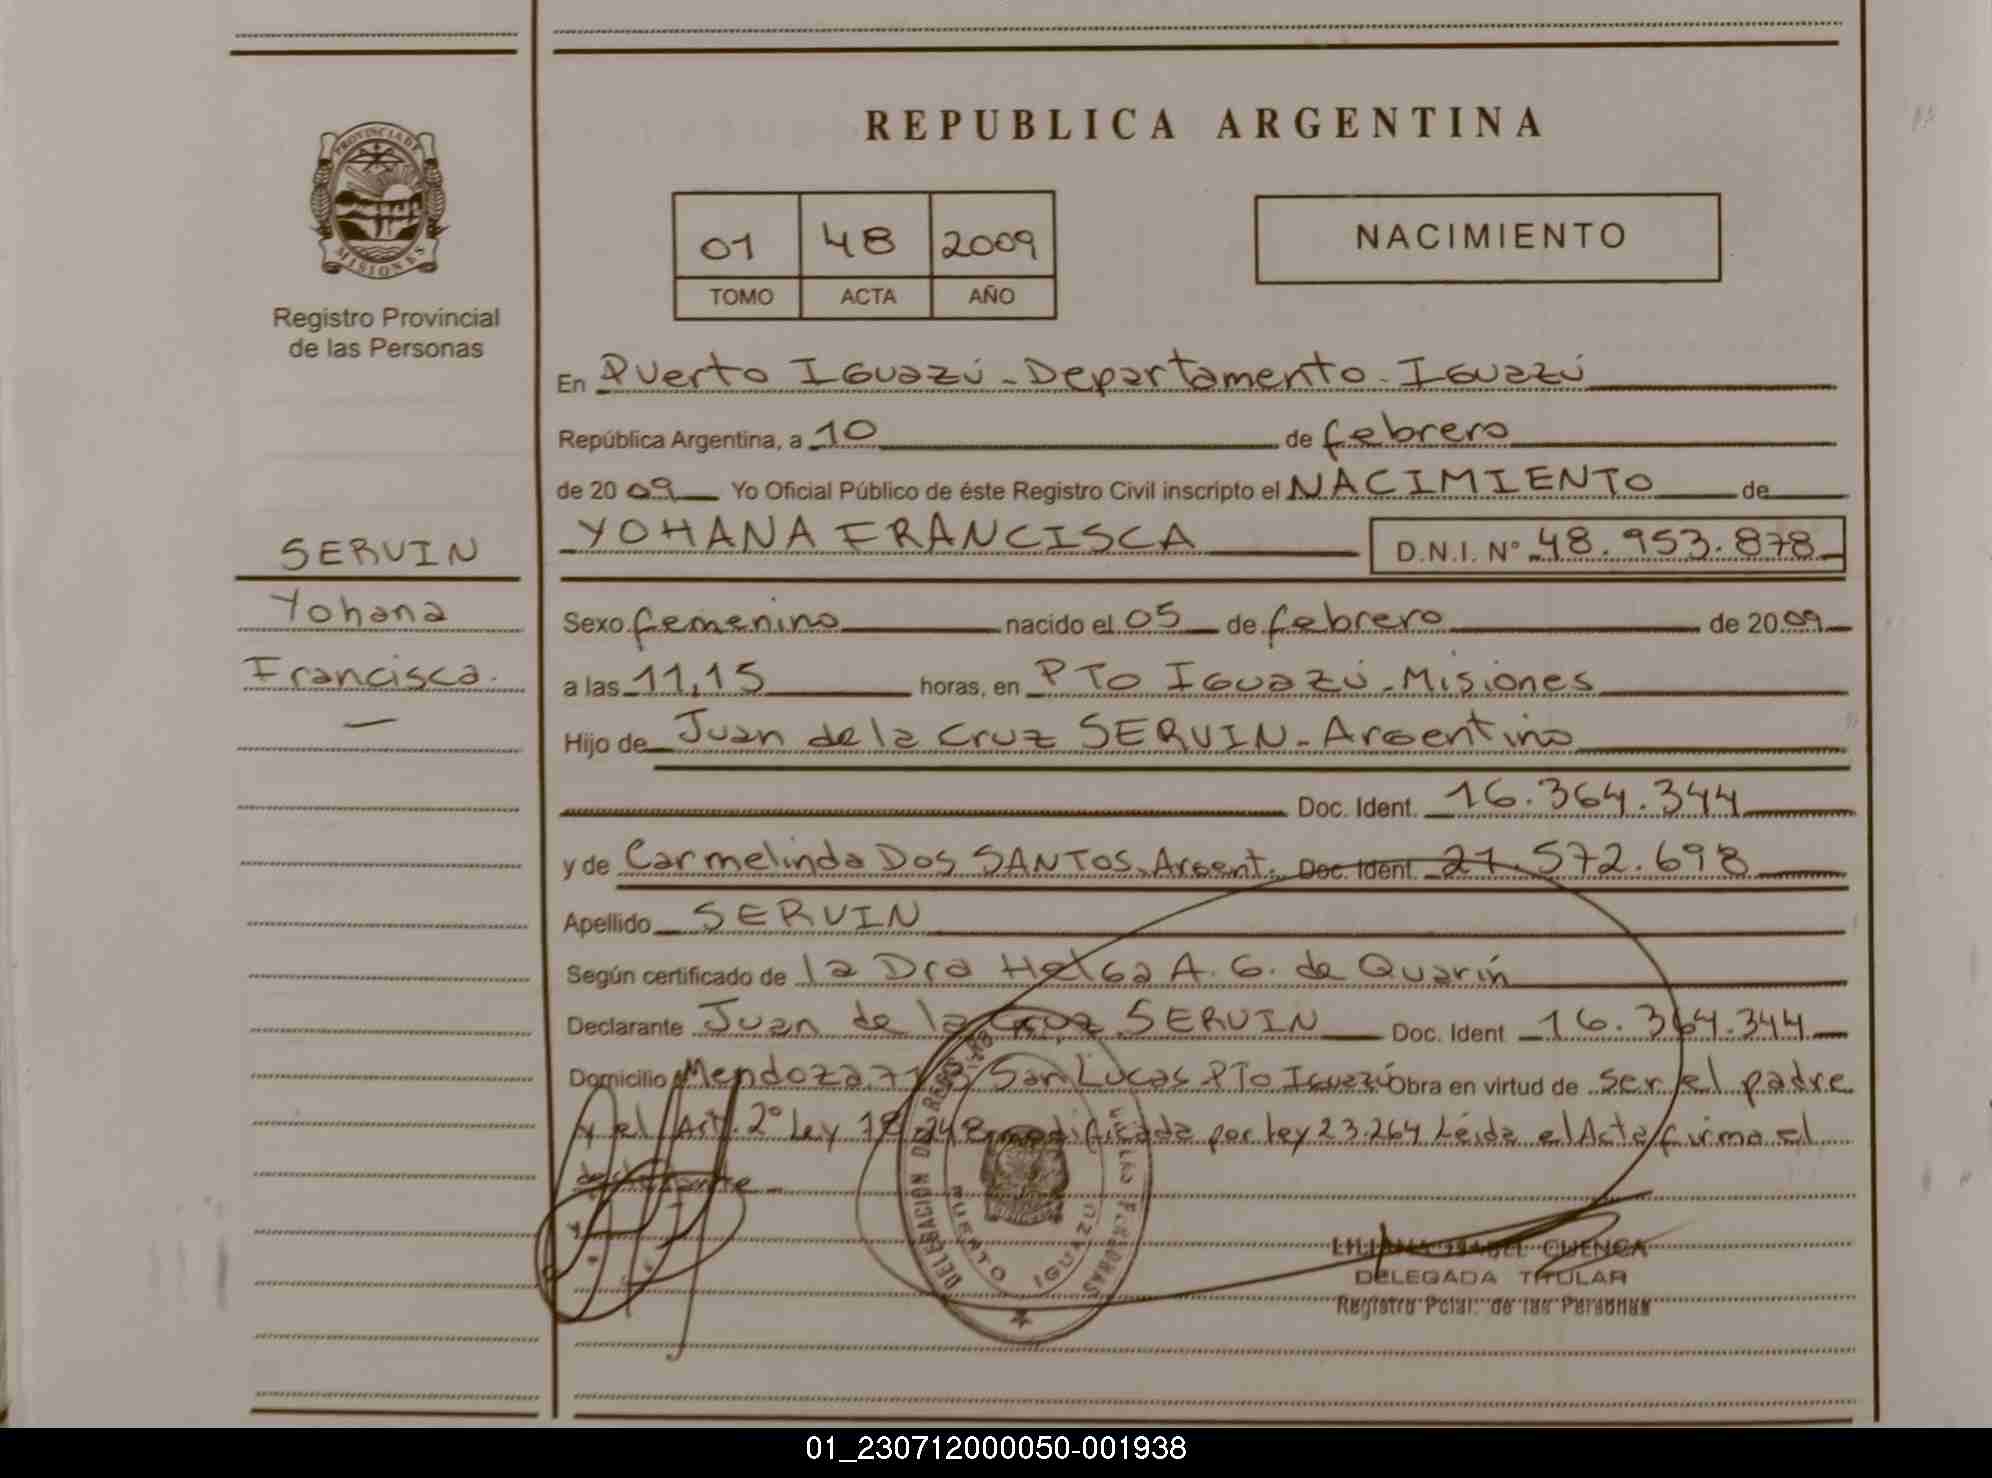 REPUBLICA ARGENTINA
PROVINCIA DE
MISIONES
Registro Provincial
de las Personas
01 48 2009
TOMO ACTA AÑO
NACIMIENTO
En Puerto Iguazú - Departamento - Iguazú
República Argentina, a 10 de febrero
de 2009 Yo Oficial Público de éste Registro Civil inscripto el NACIMIENTO de
YOHANA FRANCISCA D.N.I. N° 48.953.878
SERVIN
Yohana
Francisca.
Sexo femenino nacido el 05 de febrero de 2009
a las 11,15 horas, en PTo Iguazú - Misiones
Hijo de Juan de la Cruz SERVIN - Argentino
Doc. Ident. 16.364.344
y de Carmelinda DOS SANTOS - Argent. Doc. Ident. 21.572.698
Apellido SERVIN
Según certificado de la Dra Helga A. G. de Quarín
Declarante Juan de la Cruz SERVIN Doc. Ident 16.364.344
Domicilio Mendoza San Lucas PTo Iguazú Obra en virtud de ser el padre
y el Art. 2° Ley 18.248 modificada por Ley 23.264 Leída el Acta firma el
declarante -
DELEGACION DE
PUERTO IGUAZU
LILIANA ISABEL CUENCA
DELEGADA TITULAR
Registro Pcial. de las Personas
01_230712000050-001938